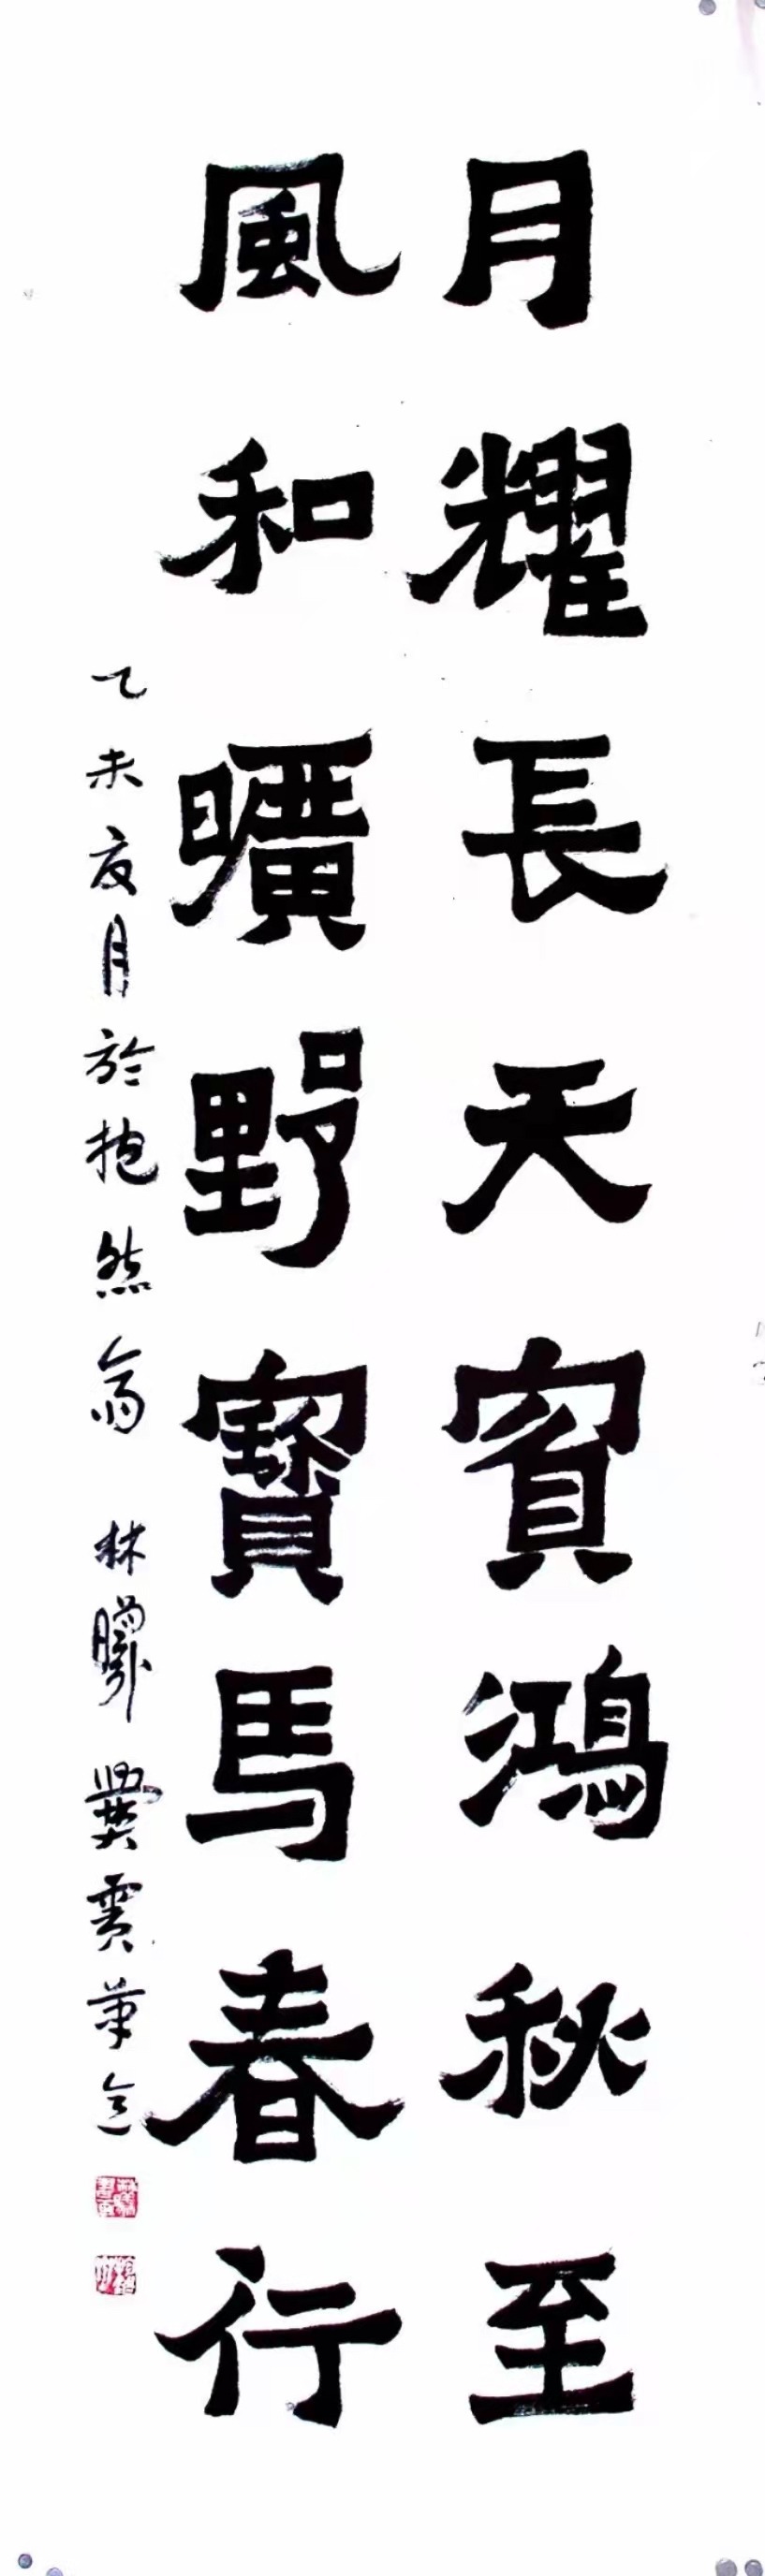 月耀長天賓鴻秋至
風和曠野寶馬春行
乙未夏月於抱然齋 林曦爨寶筆意